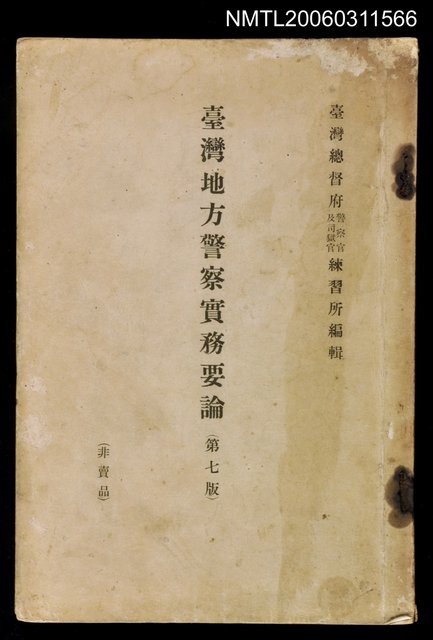 NMTL20060311566
臺灣總督府警察官及司獄官練習所編輯
臺灣地方警察實務要論（第七版）
（非賣品）